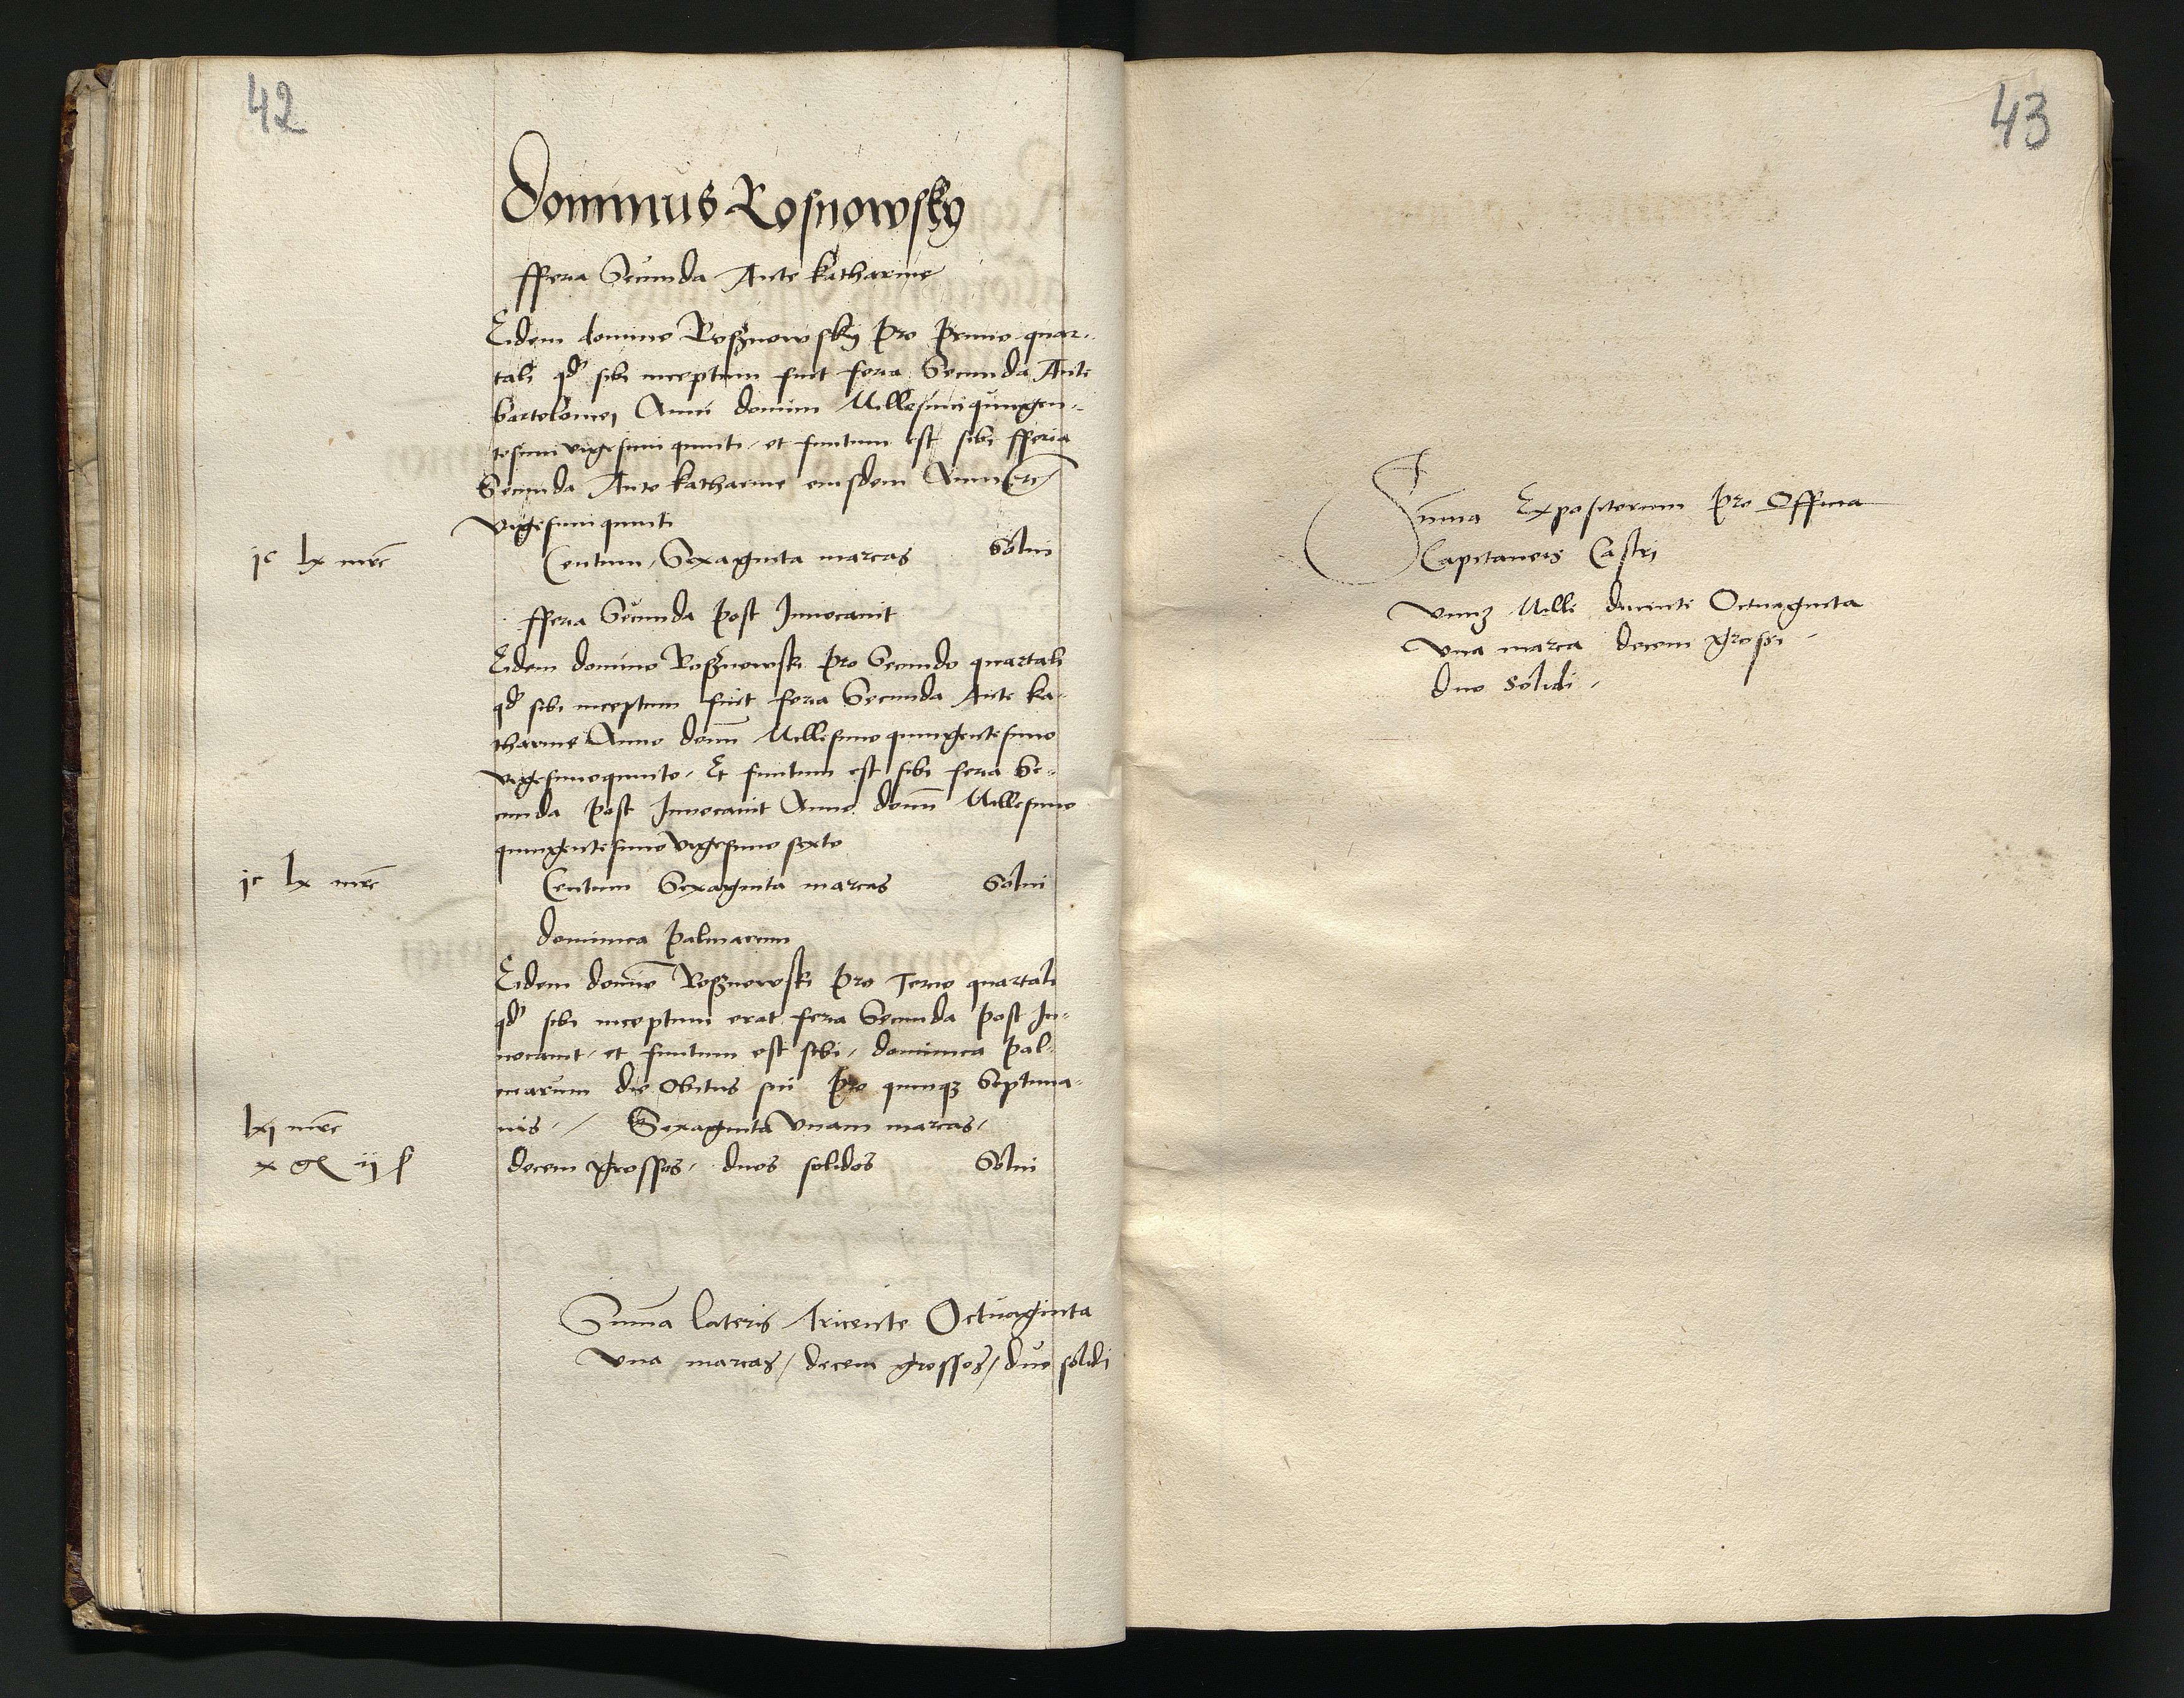 42
Dominus Rosnowsky
fferia Secunda Ante Katharine
Eidem domino Roßnowsky pro primo quar-
tali qd sibi inceptum fuit feria Secunda Ante
bartolomej Anni domini Millesimiquingen-
tesimi vigesimi quinti et finitum est sibi fferia
Secunda Ante Katharine eiusdem Anni etc
vigesimi quinti
jc lx mrc Centum Sexaginta marcas Solui
fferia Secunda post Inuocauit
Eidem domino Roßnowski pro Secundo quartali
qd sibi inceptum fuit feria Secunda Ante Ka-
tharine Anno domi Millesimo quingentesimo
vigesimoquinto Et finitum est sibi feria Se-
cunda post Inuocauit Anno domi Millesimo
quingentesimo vigesimo sexto
jc lx mrc Centum Sexaginta marcas Solui
dominica palmarum
Eidem domino Roßnowski pro Tercio quartali
qd sibi inceptum erat feria Secunda post In-
uocauit et finitum est sibi dominica pal-
marum die obitus sui pro quinqz Septima-
lxj mrc nis / Sexaginta vnam marcas /
x gr ij s decem grossos / duos solidos Solui
Suma lateris tricente Octuaginta
vna marcas / decem grossos / duo solidi
43
Suma Expositorum pro Officia
Capitaneis Castri
vnuz Mille ducente Octuaginta
vna marca decem grossi
duo solidi